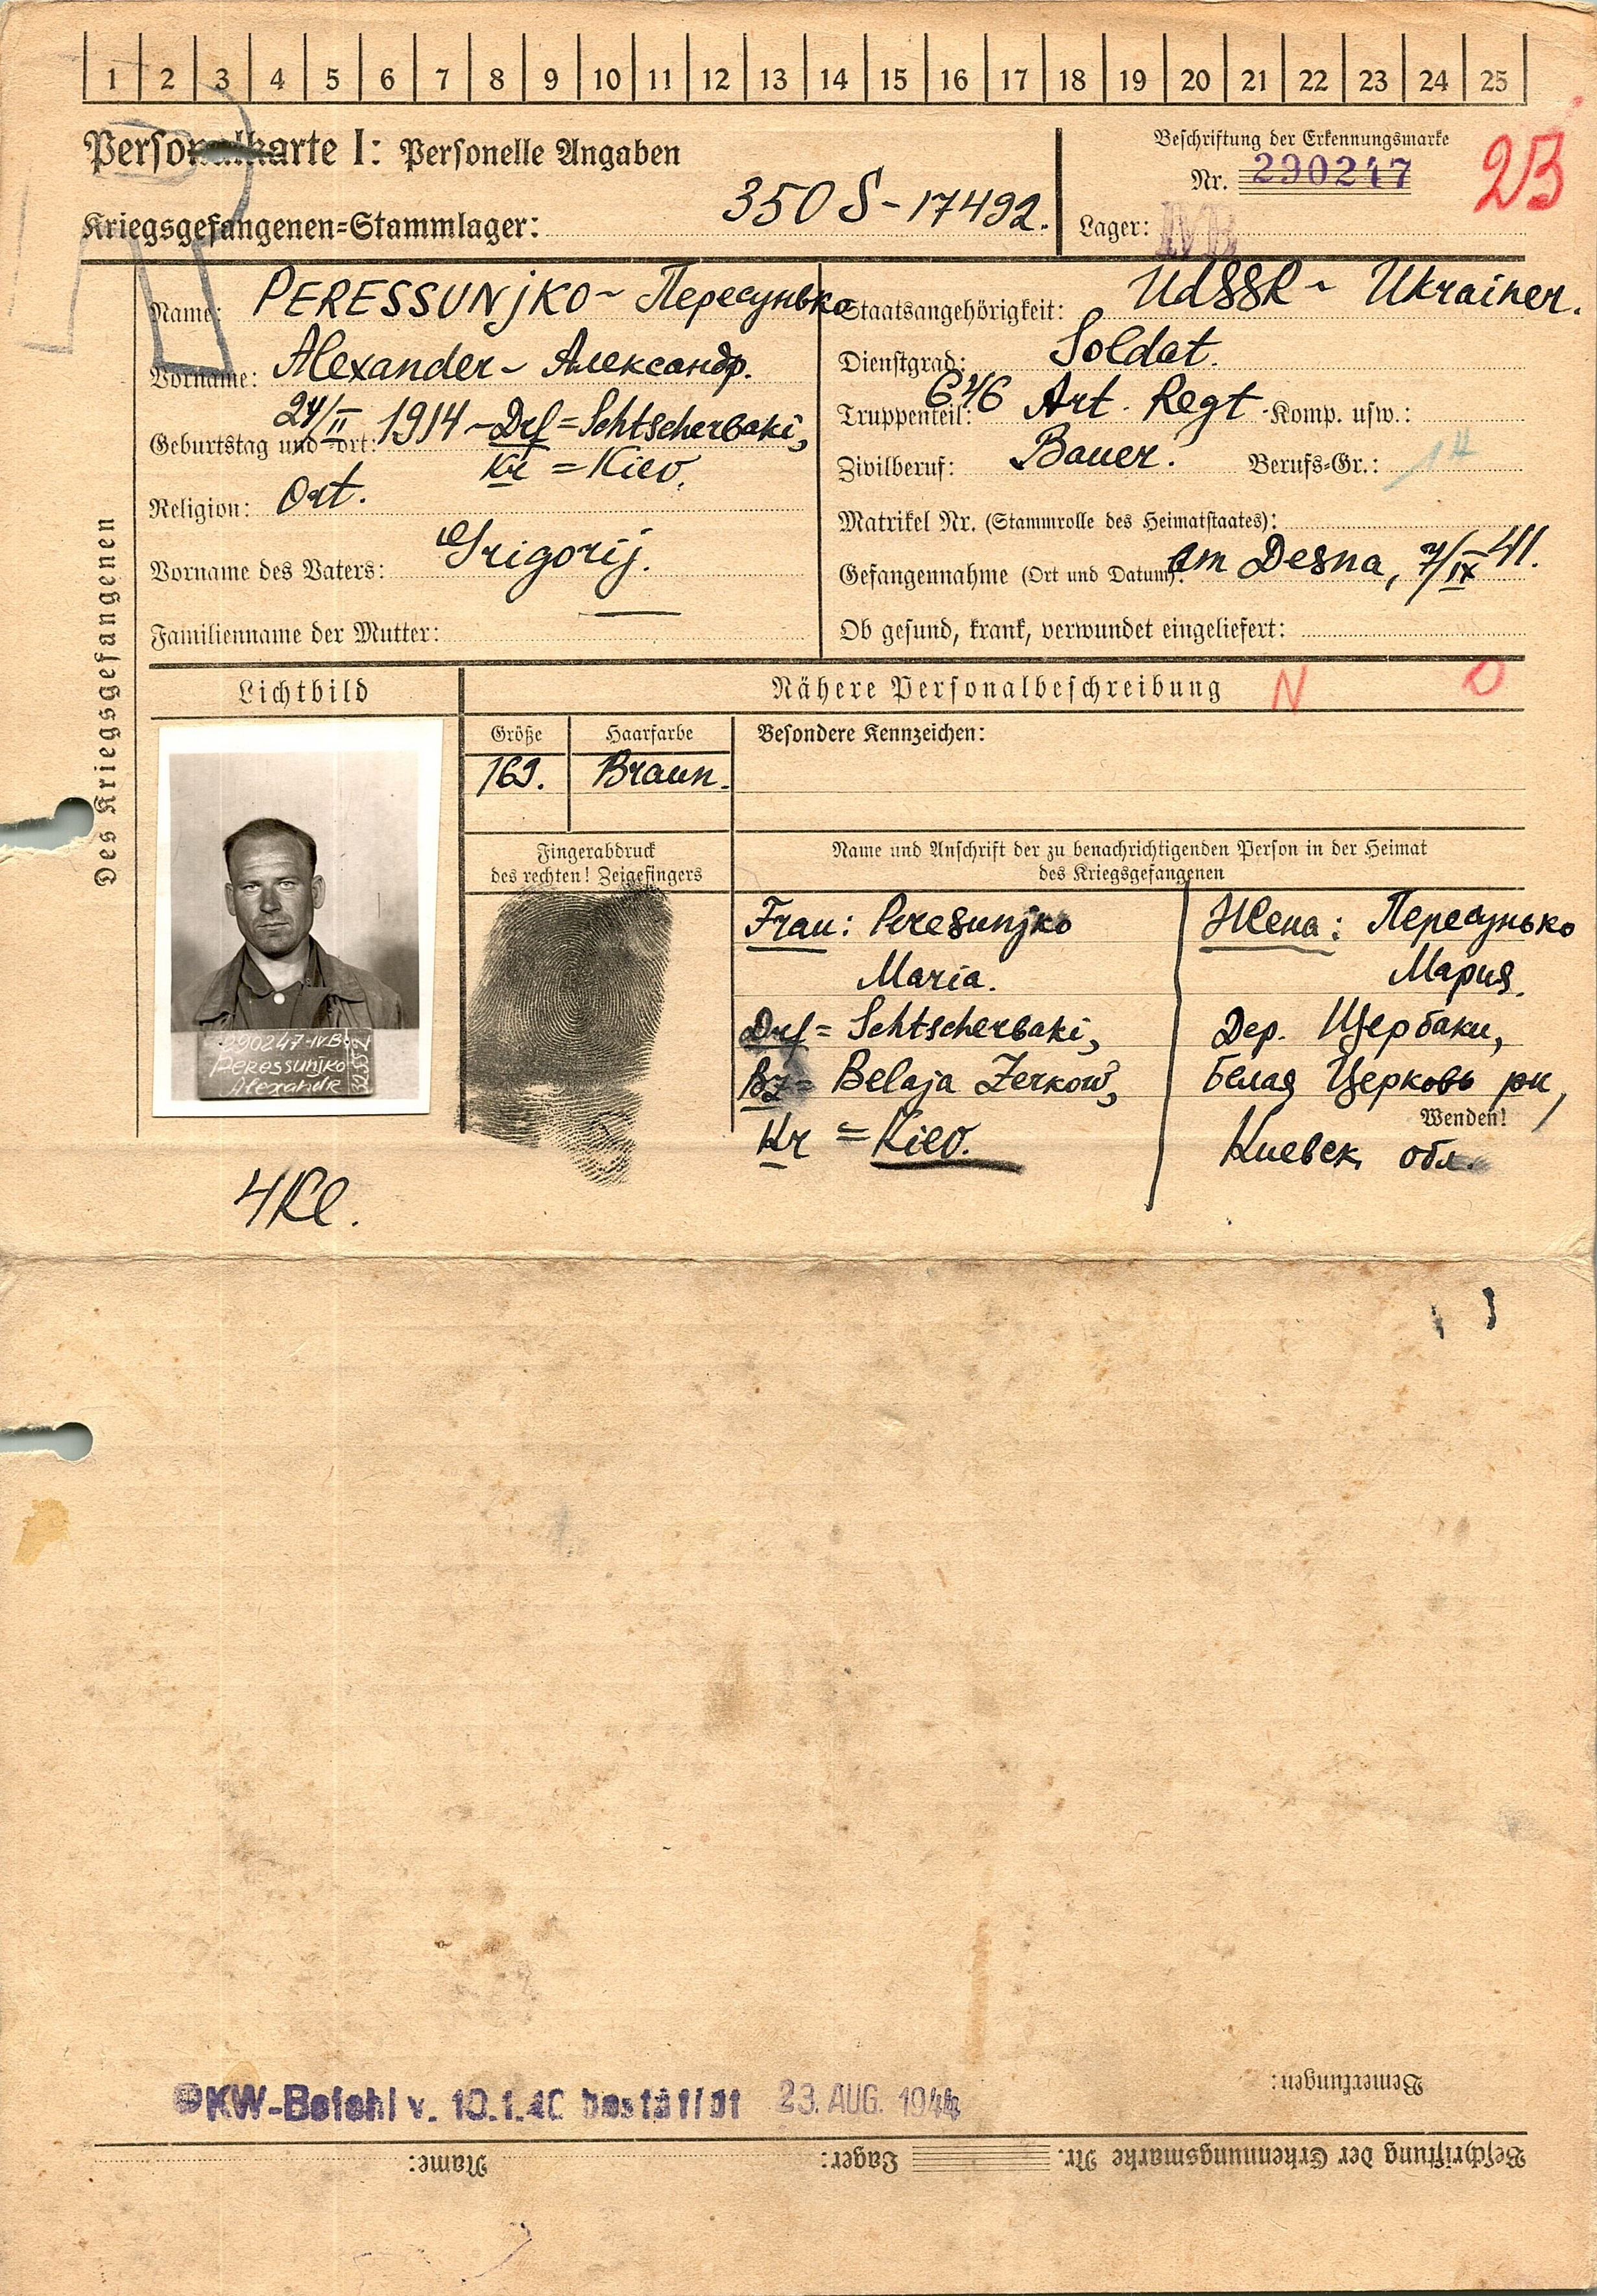 1 2 3 4 5 6 7 8 9 10 11 12 13 14 15 16 17 18 19 20 21 22 23 24 25
Personalkarte I: Personelle Angaben
Kriegsgefangenen=Stammlager: 350 S - 17492.
Beschriftung der Erkennungsmarke
Nr. 290247
Lager: IVB
23
Des Kriegsgefangenen
Name: PERESSUNjKO ~ Пересунько
Vorname: Alexander ~ Александр.
Geburtstag und =ort: 24/II 1914 ~ Drf = Schtscherbaki,
Kr = Kiev.
Religion: Ort.
Vorname des Vaters: Grigorij.
Familienname der Mutter:
Staatsangehörigkeit: UdSSR ~ Ukrainer.
Dienstgrad: Soldat.
Truppenteil: 646 Art. Regt Komp. usw.:
Zivilberuf: Bauer. Berufs=Gr.:
Matrikel Nr. (Stammrolle des Heimatstaates):
Gefangennahme (Ort und Datum): am Desna, 7/IX 41.
Ob gesund, krank, verwundet eingeliefert:
Lichtbild
Nähere Personalbeschreibung N O
Größe Haarfarbe Besondere Kennzeichen:
169. Braun.
Fingerabdruck
des rechten! Zeigefingers
Name und Anschrift der zu benachrichtigenden Person in der Heimat
des Kriegsgefangenen
Frau: Peresunjko
Maria.
Drf = Schtscherbaki,
Bz = Belaja Zerkow,
Kr = Kiev.
Жена: Пересунько
Мария.
Дер. Щербаки,
Белая Церковь рн,
Wenden!
Киевск обл.
290247-IVB
Peressunjko
Alexandr
4 Kl.
OKW-Befehl v. 10.1.40 bestätigt 23. AUG. 1944
Bemerkungen:
Beschriftung der Erkennungsmarke Nr. Lager: Name: